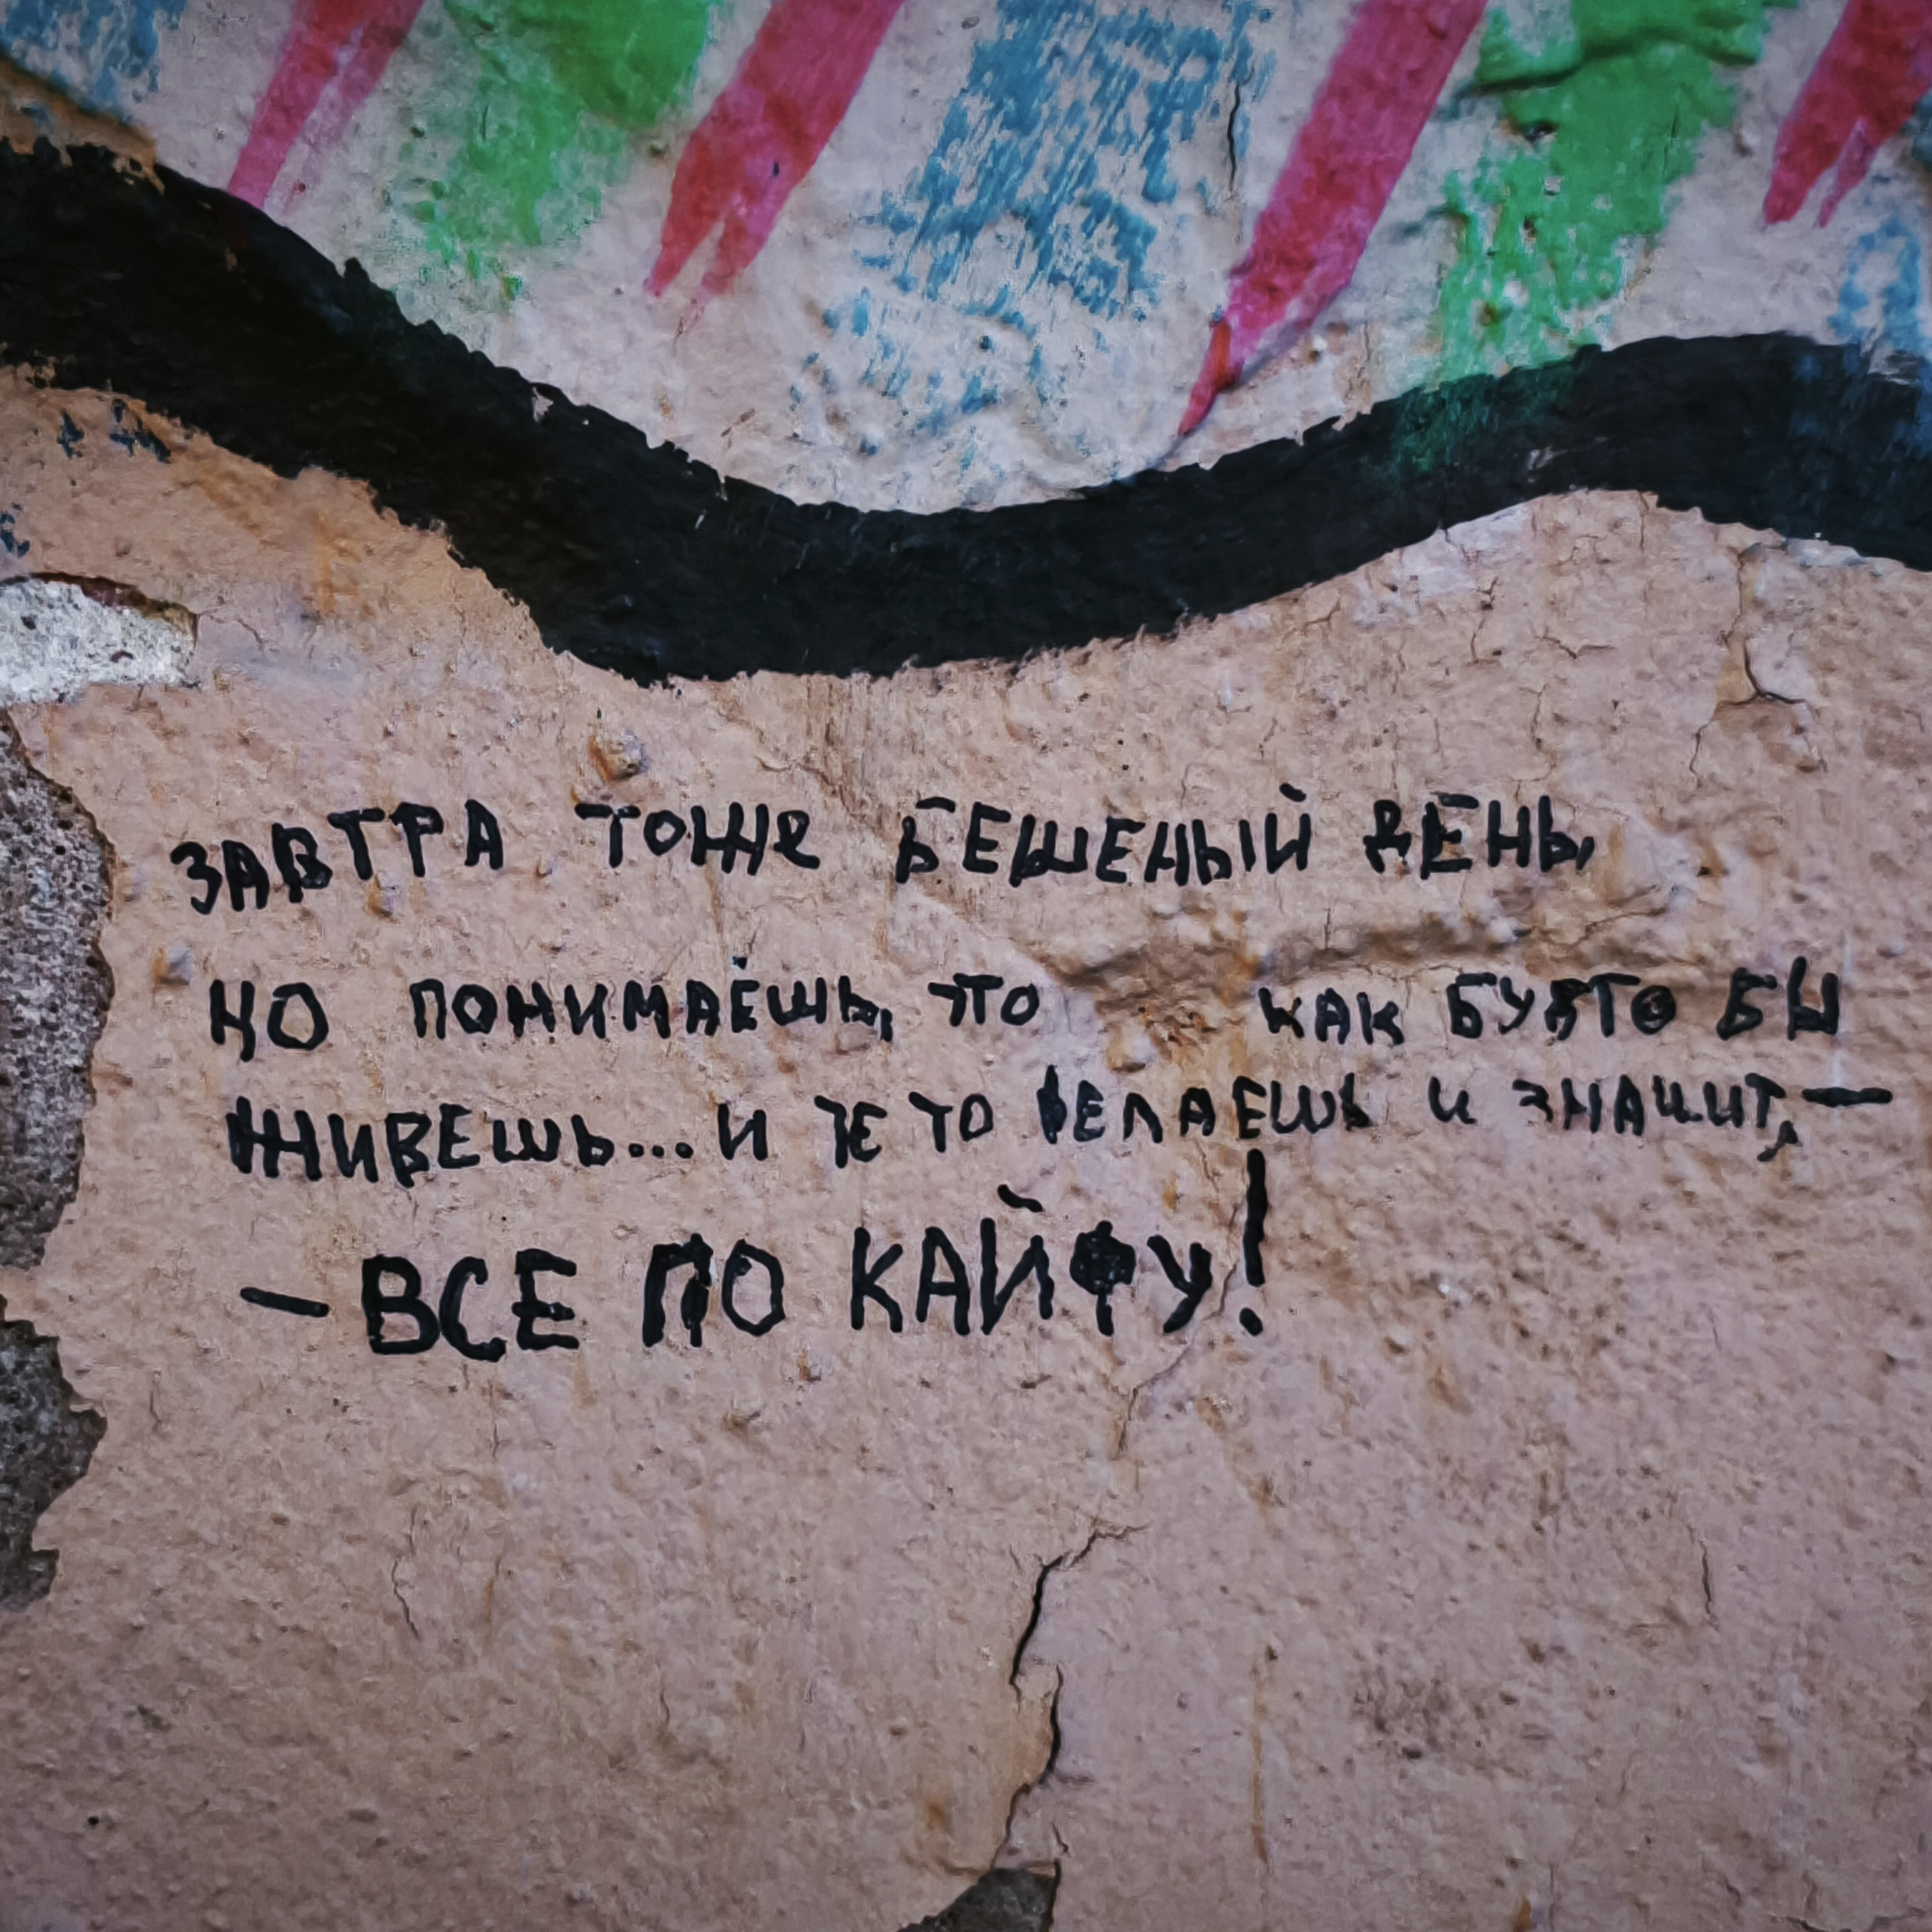 ЗАВТРА ТОЖЕ БЕШЕНЫЙ ДЕНЬ,
НО ПОНИМАЕШЬ, ЭТО КАК БУДТО БЫ
ЖИВЕШЬ... И ТЕ ТО ДЕЛАЕШЬ И ЗНАЧИТ, —
— ВСЕ ПО КАЙФУ!